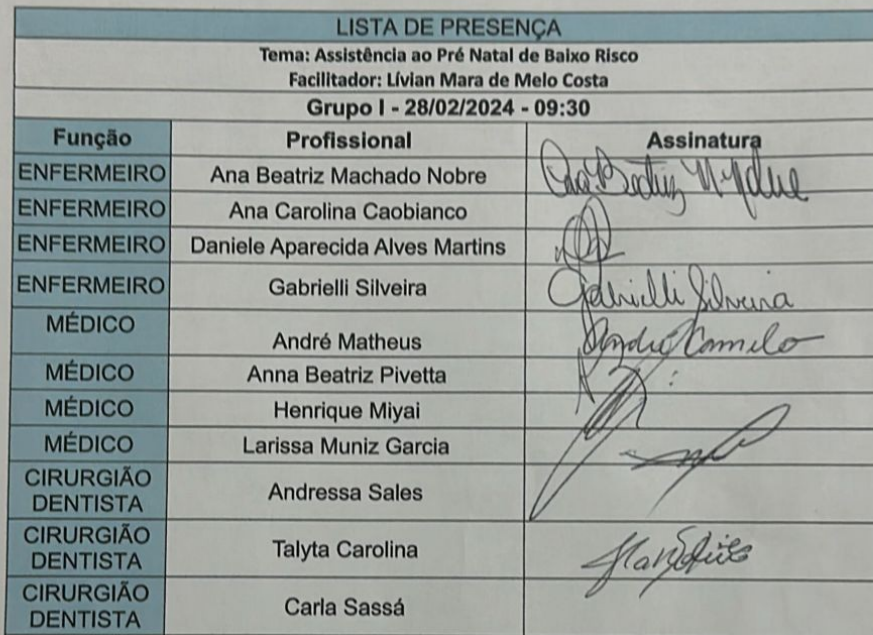 LISTA DE PRESENÇA
Tema: Assistência ao Pré Natal de Baixo Risco
Facilitador: Lívian Mara de Melo Costa
Grupo I - 28/02/2024 - 09:30
Função Profissional Assinatura
ENFERMEIRO Ana Beatriz Machado Nobre Ana Beatriz
ENFERMEIRO Ana Carolina Caobianco
ENFERMEIRO Daniele Aparecida Alves Martins
ENFERMEIRO Gabrielli Silveira Gabrielli Silveira
MÉDICO André Matheus André Camilo
MÉDICO Anna Beatriz Pivetta
MÉDICO Henrique Miyai
MÉDICO Larissa Muniz Garcia
CIRURGIÃO
DENTISTA Andressa Sales
CIRURGIÃO
DENTISTA Talyta Carolina
CIRURGIÃO
DENTISTA Carla Sassá